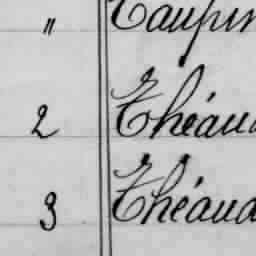 " Taupin
2 Théau
3 Théaud